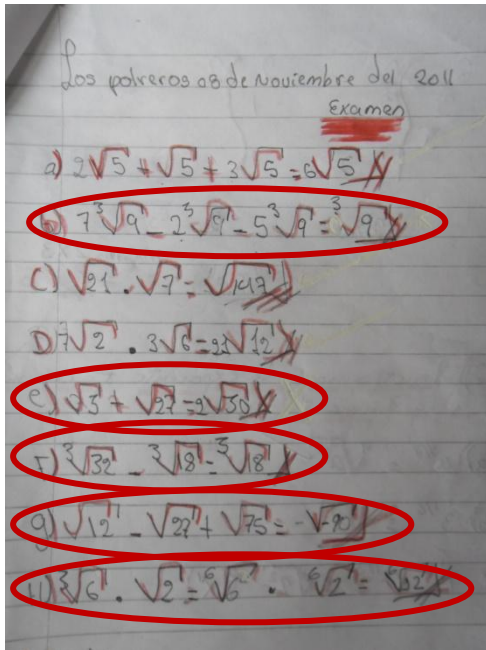 Los potreros 08 de Noviembre del 2011
Examen
a) 2√5 + √5 + 3√5 = 6√5
b) 7∛9 - 2∛9 - 5∛9 = ∛9
c) √21 . √7 = √147
D) 7√2 . 3√6 = 21√12
e) √3 + √27 = 2√30
F) ∛32 - ∛18 = ∛18
g) √12 - √27 + √75 = -√-90
∛6 . √2 = ⁶√6 . ⁶√2 =